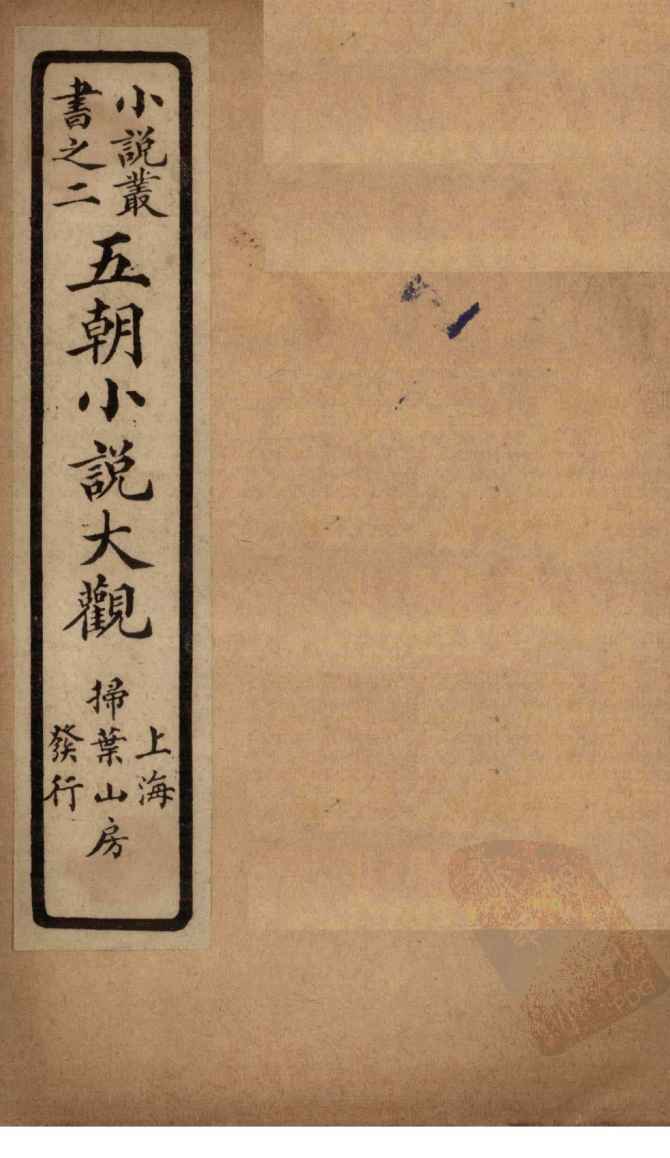 小說叢
書之二
五朝小說大觀
上海
掃葉山房
發行